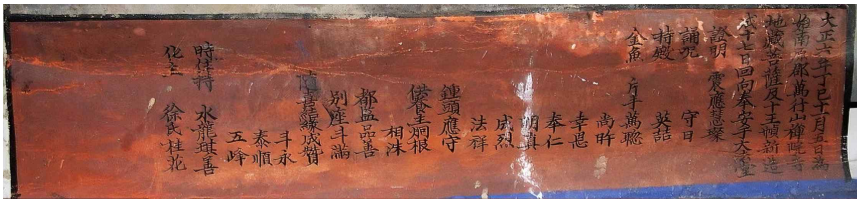 大正六年丁巳十一月五日為
始南海郡萬行山禪
地藏菩薩及十王幀新造
十七日回向奉安于大
證明 震應慧璨
誦呪 守日
持殿 英喆
金魚 片手萬聰
尚旿
幸恩
奉仁
明真
成烈
法祥
鍾頭應守
供養主炯根
相洙
都監品善
別座斗滿
隨喜緣成贊
斗永
泰順
五峰
時住持 水龍
化主 徐氏桂花